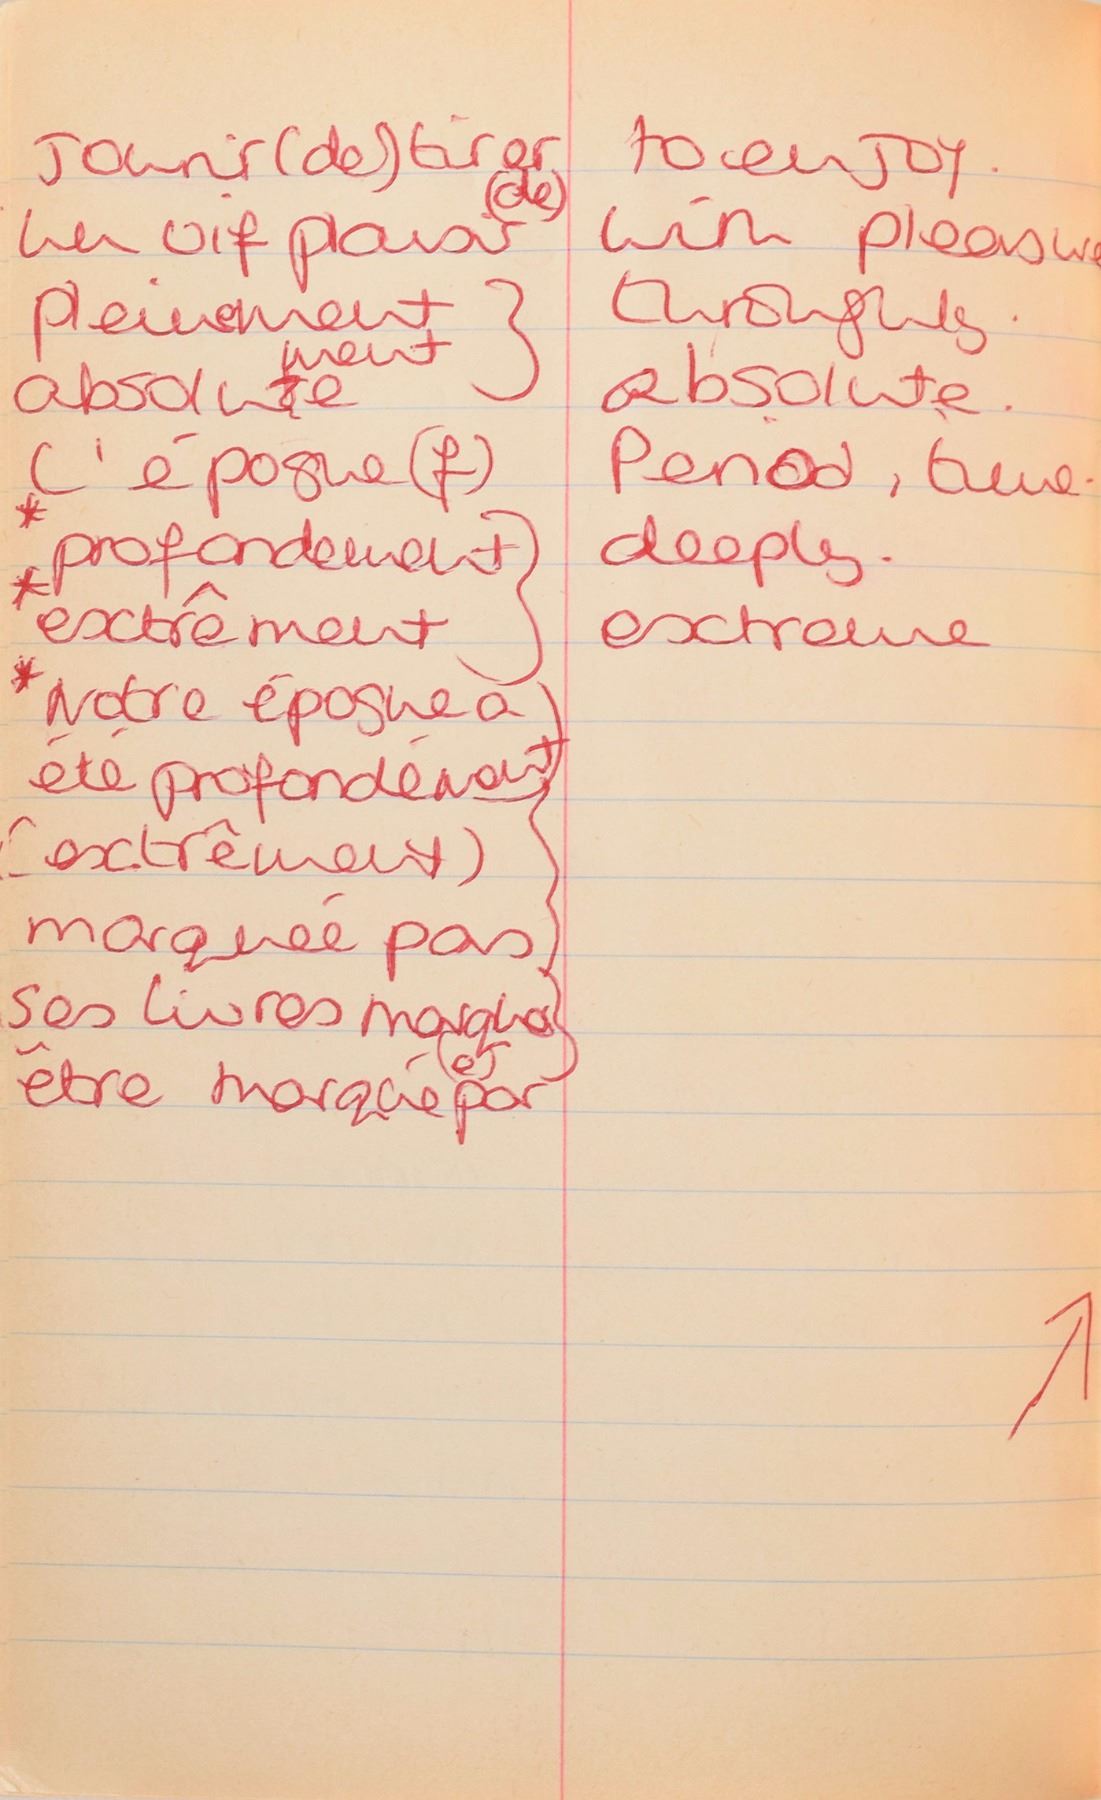 Jounir (de) tirer to enjoy.
(de)
un vif plaisir with pleasure
pleinement throughly.
ment
absolute absolute.
L'époque (f) Period, time.
* profondement deeply.
* extrêment extreme
* Notre époque a
été profondément
(extrêment)
marqueé pas
ses livres
(e)
être marqué par